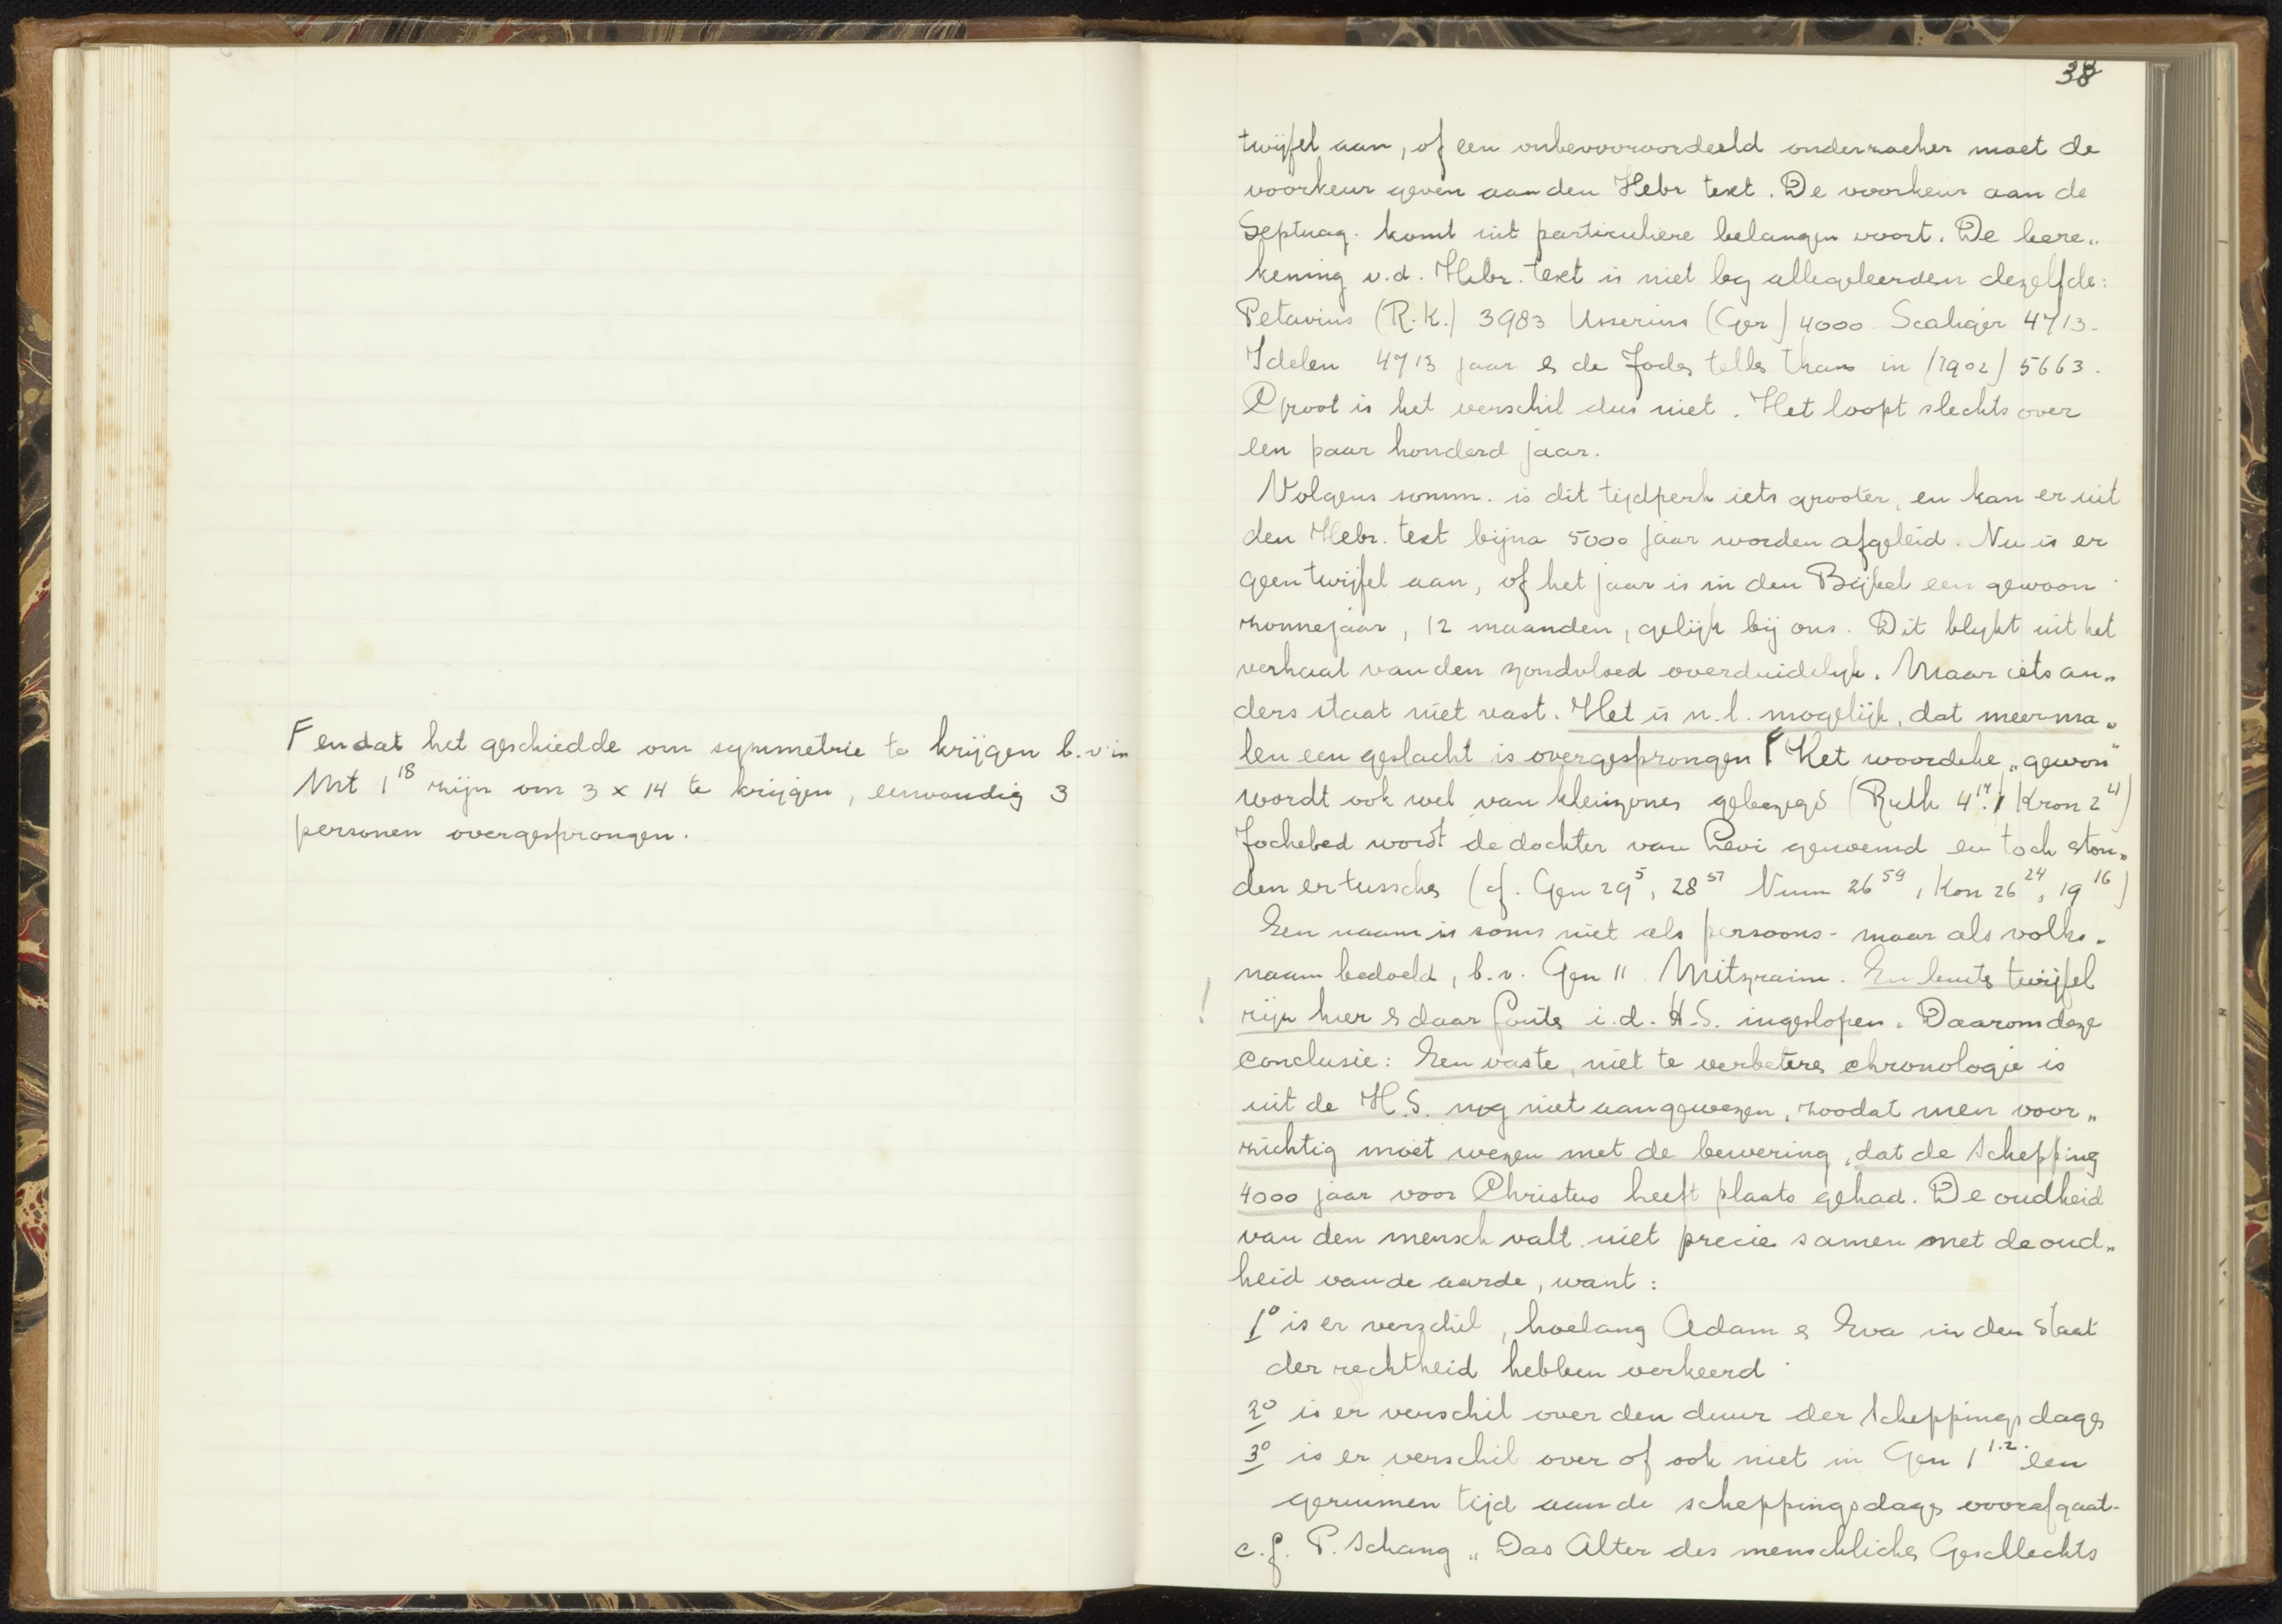 F en dat het geschiedde om symmetrie te krijgen b.v. in
Mt 1 18 zijn om 3 x 14 te krijgen, eenvoudig 3
personen overgesprongen.
38
twijfel aan, of een onbevooroordeeld onderzoeker moet de
voorkeur geven aan den Hebr text. De voorkeur aan de
Septuag. komt uit particuliere belangen voort. De bere„
kening v.d. Hebr. text is niet bij alle geleerden dezelfde:
Petavius (R.K.) 3983 Usserius (Ger) 4000 Scaliger 4713.
Idelen 4713 jaar & de Jode telle thans in (1902) 5663.
Groot is het verschil dus niet. Het loopt slechts over
een paar honderd jaar.
Volgens somm. is dit tijdperk iets grooter, en kan er uit
den Hebr. text bijna 5000 jaar worden afgeleid. Nu is er
geen twijfel aan, of het jaar is in den Bijbel een gewoon
zonnejaar, 12 maanden, gelijk bij ons. Dit blijkt uit het
verhaal van den zondvloed overduidelijk. Maar iets an„
ders staat niet vast. Het is n.l. mogelijk, dat meerma„
len een geslacht is overgesprongen F Het woordeke „gewon"
wordt ook wel van kleinzones gebezigd (Ruth 4 17. 1 Kron 2 41)
Jochebed wordt de dochter van Levi genoemd en toch ston„
den er tussche (cf. Gen 29 5, 28 57 Num 26 59, 1 Kon 26 24, 19 16)
Een naam is soms niet als persoons- maar als volks„
naam bedoeld, b.v. Gen 11 Mitzraim. En buite twijfel
! zijn hier & daar foute i.d. H.S. ingeslopen. Daarom deze
conclusie: Een vaste, niet te verbetere chronologie is
uit de H.S. nog niet aangewezen, zoodat men voor„
zichtig moet wezen met de bewering, dat de schepping
4000 jaar voor Christus heeft plaats gehad. De oudheid
van den mensch valt niet precies samen met de oud„
heid van de aarde, want:
1o is er verschil, hoelang Adam & Eva in den staat
der rechtheid hebben verkeerd
2o is er verschil over den duur der scheppingsdage
3o is er verschil over of ook niet in Gen 1 1.2. een
geruimen tijd aan de scheppingsdage voorafgaat.
c.f. P. Schanz „Das Alter des menschliche Geschlechts